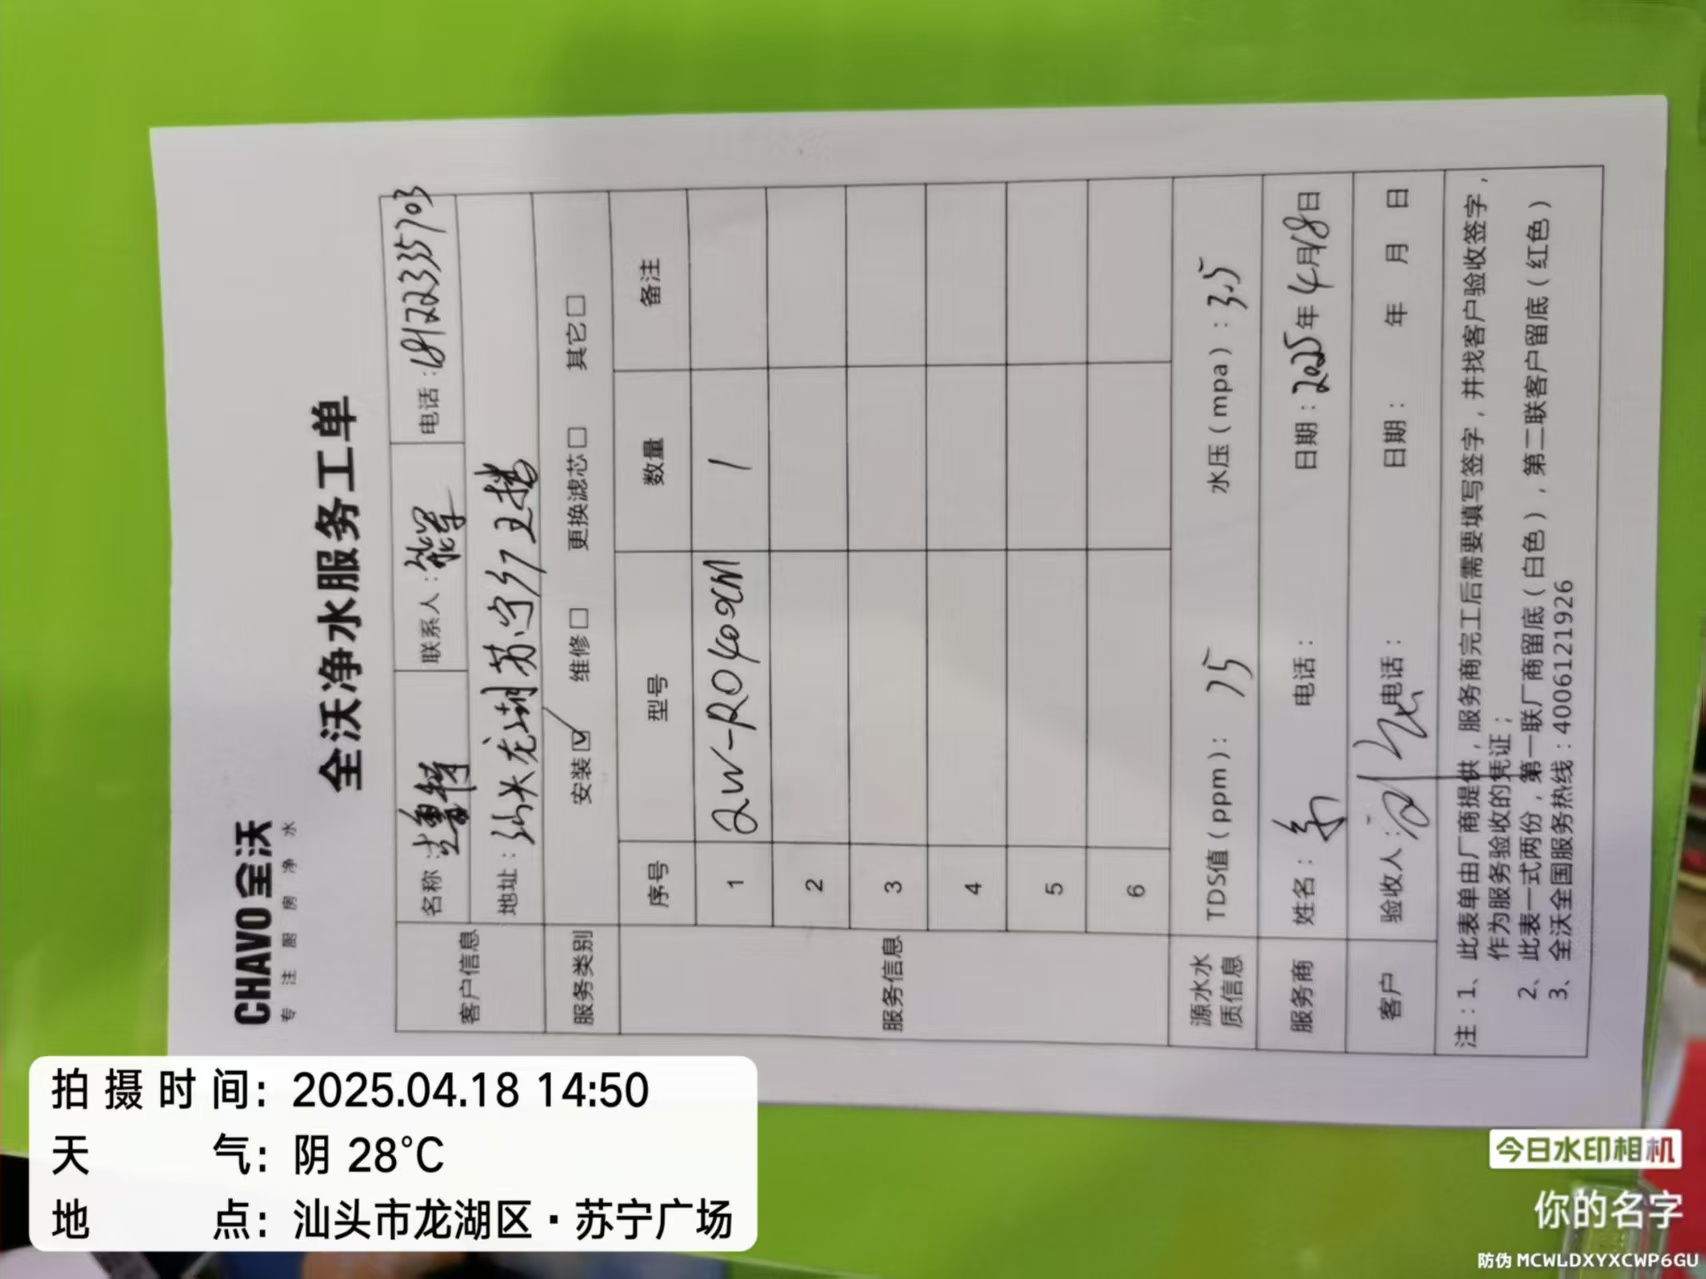 CHAVO 全沃
专注厨房净水
全沃净水服务工单
客户信息
名称： 联系人： 电话：18122335703
地址：汕头龙湖苏宁
服务类别 安装☑ 维修□ 更换滤芯□ 其它□
服务信息
序号 型号 数量 备注
1 QW-RO400CM 1
2
3
4
5
6
源水水质信息 TDS值（ppm）：75 水压（mpa）：3.5
服务商 姓名： 电话： 日期：2025年4月18日
客户 验收人： 电话： 日期： 年 月 日
注：1、此表单由厂商提供，服务商完工后需要填写签字，并找客户验收签字，
作为服务验收的凭证；
2、此表一式两份，第一联厂商留底（白色），第二联客户留底（红色）
3、全沃全国服务热线：4006121926
拍摄时间：2025.04.18 14:50
天气：阴 28°C
地点：汕头市龙湖区·苏宁广场
今日水印相机
你的名字
防伪 MCWLDXYXCWP6GU